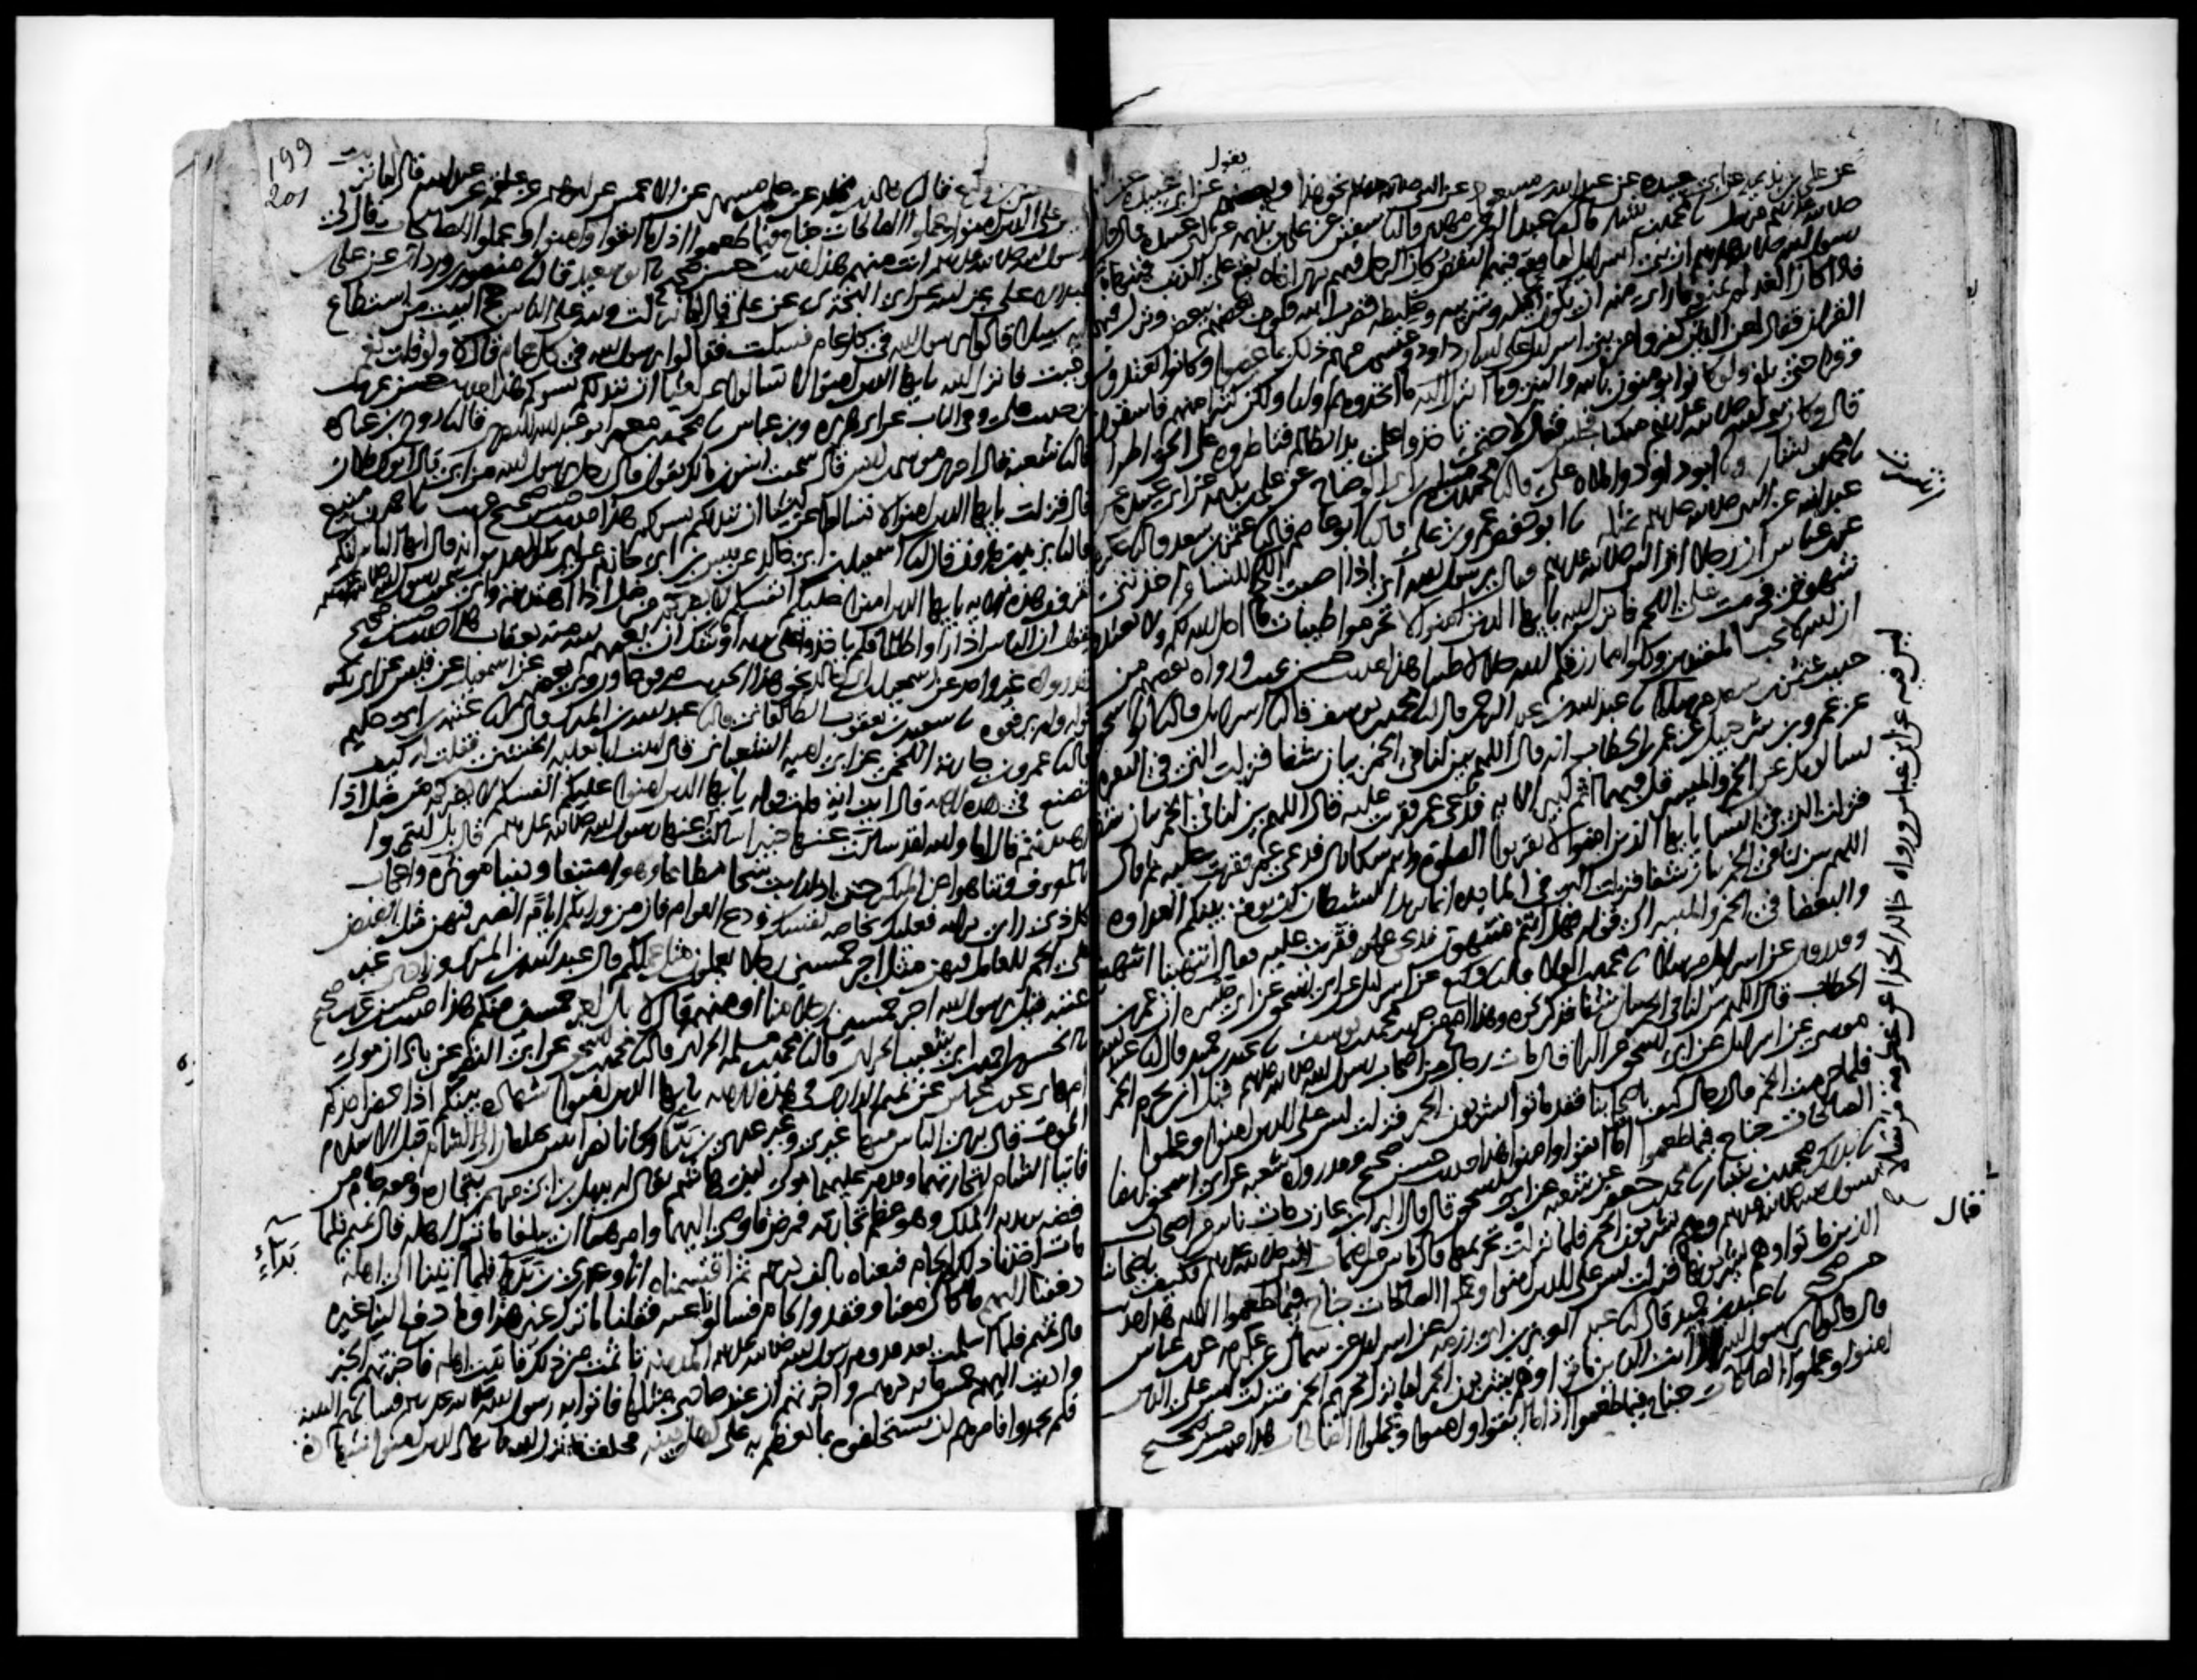 يقول
عن علي بن بذيمة عن ابي عبيدة عن عبد الله بن مسعود عن النبي صلى الله عليه وسلم نحو هذا وبعضهم عن ابي عبيدة عن
صلى الله عليه وسلم مرسل نا محمد بن بشار قال نا عبد الرحمن بن مهدي قال نا سفين عن علي بن بذيمة عن ابي عبيدة قال قال
رسول الله صلى الله عليه وسلم ان بني اسرايل لما وقع فيهم النقص كان الرجل فيهم يرى اخاه يقع على الذنب فينهاه
فاذا كان الغد لم يمنعه ما راى منه ان يكون اكيله وشريبه وخليطه فضرب الله قلوب بعضهم ببعض ونزل فيهم
القران فقال لعن الذين كفروا من بني اسرايل على لسان داود وعيسى بن مريم ذلك بما عصوا وكانوا يعتدون
وقرا حتى بلغ ولو كانوا يومنون بالله والنبي وما انزل اليه ما اتخذوهم اوليا ولكن كثيرا منهم فاسقون
قال وكان نبي الله صلى الله عليه وسلم متكيا فجلس فقال لا حتى تاخذوا على يد الظالم فتاطروه على الحق اطرا
نا محمد بن بشار نا ابو داود واملاه علي قال نا محمد بن مسلم بن ابي الوضاح عن علي بن بذيمة عن ابي عبيدة عن
عبد الله عن النبي صلى الله عليه وسلم مثله نا ابو حفص عمرو بن علي قال نا ابو عاصم قال نا عثمن بن سعد قال نا عكرمة
عن ابن عباس ان رجلا اتى النبي صلى الله عليه وسلم فقال يرسول الله اني اذا اصبت اللحم انتشرت للنسا واخذتني
شهوتي فحرمت علي اللحم فانزل الله يا يها الذين امنوا لا تحرموا طيبات ما احل الله لكم ولا تعتدوا
ان الله لا يحب المعتدين وكلوا مما رزقكم الله حلالا طيبا هذا حديث حسن غريب ورواه بعضهم من
حديث عثمن بن سعد مرسلا نا عبد الله بن عبد الرحمن قال نا محمد بن يوسف قال نا اسرايل قال نا ابو اسحق
عن عمرو بن شرحبيل عن عمر بن الخطاب انه قال اللهم بين لنا في الخمر بيان شفا فنزلت التي في البقرة
يسالونك عن الخمر والميسر قل فيهما اثم كبير الاية فدعى عمر فقرئت عليه فقال اللهم بين لنا في الخمر بيان شفا
فنزلت التي في النسا يا يها الذين امنوا لا تقربوا الصلوة وانتم سكارى فدعى عمر فقرئت عليه ثم قال
اللهم بين لنا في الخمر بيان شفا فنزلت التي في المايدة انما يريد الشيطان ان يوقع بينكم العداوة
والبغضا في الخمر والميسر الى قوله فهل انتم منتهون فدعى عمر فقرئت عليه فقال انتهينا انتهينا
وقد روي عن اسرايل مرسلا نا محمد بن العلا قال نا وكيع عن اسرايل عن ابي اسحق عن ابي ميسرة ان عمر بن
الخطاب قال اللهم بين لنا في الخمر بيان شفا فذكر نحوه وهذا اصح من حديث محمد بن يوسف نا عبد بن حميد قال نا عبيد الله بن
موسى عن اسرايل عن ابي اسحق عن البرا قال مات رجال من اصحاب رسول الله صلى الله عليه وسلم قبل ان تحرم الخمر
فلما حرمت الخمر قال رجال كيف باصحابنا فقد ماتوا يشربون الخمر فنزلت ليس على الذين امنوا وعملوا
الصالحات جناح فيما طعموا اذا ما اتقوا وامنوا هذا حديث حسن صحيح وقد رواه شعبة عن ابي اسحق ايضا
نا بذلك محمد بن بشار نا محمد بن جعفر عن شعبة عن ابي اسحق قال قال البرا بن عازب مات ناس من اصحاب
رسول الله صلى الله عليه وسلم وهم يشربون الخمر فلما نزلت تحريمها قال ناس من اصحاب النبي صلى الله عليه وسلم فكيف باصحابنا
الذين ماتوا وهم يشربونها فنزلت ليس على الذين امنوا وعملوا الصالحات جناح فيما طعموا الاية هذا حديث
حسن صحيح نا عبد بن حميد قال نا عبد العزيز بن ابي رزمة عن اسرايل عن سماك عن عكرمة عن ابن عباس
قال قالوا يرسول الله ارايت الذين ماتوا وهم يشربون الخمر لما نزل تحريم الخمر فنزلت ليس على الذين
امنوا وعملوا الصالحات جناح فيما طعموا اذا ما اتقوا وامنوا وعملوا الصالحات هذا حديث حسن صحيح
ليس فيه عن ابن عباس ورواه خالد الحذا عن عكرمة مرسلا
قال
199
201
بن وكيع قال نا خالد بن مخلد عن علي بن مسهر عن الاعمش عن ابرهيم عن علقمة عن عبد الله قال لما نزلت
ليس على الذين امنوا وعملوا الصالحات جناح فيما طعموا اذا ما اتقوا وامنوا وعملوا الصالحات قال لي
رسول الله صلى الله عليه وسلم انت منهم هذا حديث حسن صحيح نا ابو سعيد قال نا منصور بن وردان عن علي
بن عبد الاعلى عن ابيه عن ابي البختري عن علي قال لما نزلت ولله على الناس حج البيت من استطاع
اليه سبيلا قالوا يرسول الله في كل عام فسكت فقالوا يرسول الله في كل عام قال لا ولو قلت نعم
لوجبت فانزل الله يا يها الذين امنوا لا تسالوا عن اشيا ان تبد لكم تسوكم هذا حديث حسن غريب
من حديث علي وفي الباب عن ابي هريرة وبن عباس نا محمد بن معمر ابو عبد الله البصري قال نا روح بن عبادة
قال نا شعبة قال اخبرني موسى بن انس قال سمعت انس بن مالك يقول قال رجل يرسول الله من ابي قال ابوك فلان
قال فنزلت يا يها الذين امنوا لا تسالوا عن اشيا ان تبد لكم تسوكم هذا حديث حسن صحيح غريب نا احمد بن منيع
قال نا يزيد بن هرون قال نا اسمعيل بن ابي خالد عن قيس بن ابي حازم عن ابي بكر الصديق انه قال يا يها الناس انكم
تقرون هذه الاية يا يها الذين امنوا عليكم انفسكم لا يضركم من ضل اذا اهتديتم واني سمعت رسول الله صلى الله عليه وسلم
يقول ان الناس اذا راوا ظالما فلم ياخذوا على يديه اوشك ان يعمهم الله منه بعقاب هذا حديث حسن صحيح
وقد رواه غير واحد عن اسمعيل بن ابي خالد نحو هذا الحديث مرفوعا وروى بعضهم عن اسمعيل عن قيس عن ابي بكر
قوله ولم يرفعوه نا سعيد بن يعقوب الطالقاني قال نا عبد الله بن المبارك قال نا عتبة بن ابي حكيم
قال نا عمرو بن جارية اللخمي عن ابي امية الشعباني قال اتيت ابا ثعلبة الخشني فقلت له كيف
تصنع في هذه الاية قال اية اية قلت قوله يا يها الذين امنوا عليكم انفسكم لا يضركم من ضل اذا
اهتديتم قال اما والله لقد سالت عنها خبيرا سالت عنها رسول الله صلى الله عليه وسلم قال بل ايتمروا
بالمعروف وتناهوا عن المنكر حتى اذا رايت شحا مطاعا وهوى متبعا ودنيا موثرة واعجاب
كل ذي راي برايه فعليك بخاصة نفسك ودع العوام فان من ورايكم اياما الصبر فيهن مثل القبض
على الجمر للعامل فيهن مثل اجر خمسين رجلا يعملون مثل عملكم قال عبد الله بن المبارك وزادني غير
عتبة قيل يرسول الله اجر خمسين رجلا منا او منهم قال لا بل اجر خمسين منكم هذا حديث حسن غريب صحيح
نا الحسن بن احمد بن ابي شعيب الحراني قال نا محمد بن سلمة الحراني قال نا محمد بن اسحق عن ابي النضر عن باذان مولى
ام هانئ عن ابن عباس عن تميم الداري في هذه الاية يا يها الذين امنوا شهادة بينكم اذا حضر احدكم
الموت قال برئ الناس منها غيري وغير عدي بن بدا وكانا نصرانيين يختلفان الى الشام قبل الاسلام
فاتيا الشام لتجارتهما وقدم عليهما مولى لبني هاشم يقال له بديل بن ابي مريم بتجارة ومعه جام من
فضة يريد به الملك وهو عظم تجارته فمرض فاوصى اليهما وامرهما ان يبلغا ما ترك اهله قال تميم فلما
مات اخذنا ذلك الجام فبعناه بالف درهم ثم اقتسمناه انا وعدي بن بدا فلما اتينا الى اهله
دفعنا اليهم ما كان معنا وفقدوا الجام فسالونا عنه فقلنا ما ترك غير هذا وما دفع الينا غيره
قال تميم فلما اسلمت بعد قدوم رسول الله صلى الله عليه وسلم المدينة تاثمت من ذلك فاتيت اهله فاخبرتهم الخبر
واديت اليهم خمس ماية درهم واخبرتهم ان عند صاحبي مثلها فاتوا به رسول الله صلى الله عليه وسلم فسالهم البينة
فلم يجدوا فامرهم ان يستحلفوه بما يعظم به على اهل دينه فحلف فانزل الله يا يها الذين امنوا شهادة
بداء